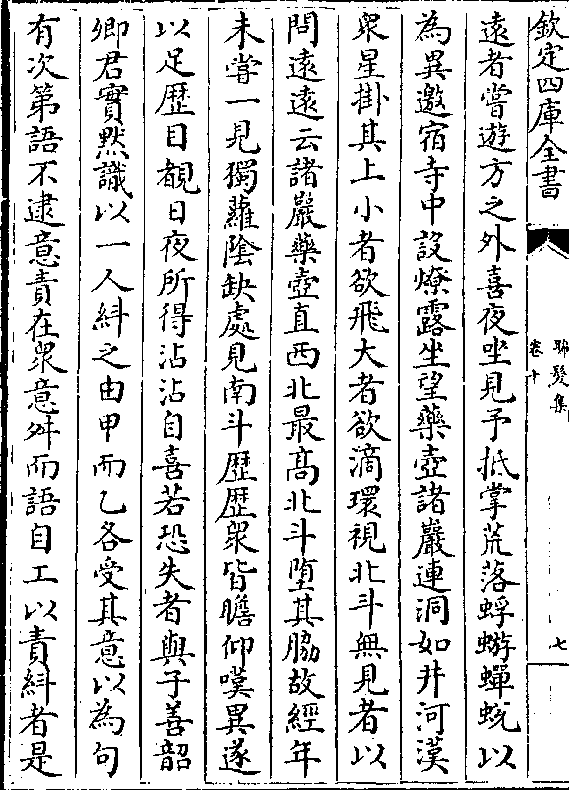 欽定四庫全書
晞髮集
卷十
七
遠者嘗遊方之外喜夜坐見予抵掌荒落蜉蝣蟬蛻以
為異邀宿寺中設燎露坐望藥壺諸巖連洞如井河漢
衆星掛其上小者欲飛大者欲滴環視北斗無見者以
問遠遠云諸巖藥壺直西北最高北斗墮其脇故經年
未嘗一見獨蘿陰缺處見南斗歴歴衆皆瞻仰嘆異遂
以足歴目覩日夜所得沾沾自喜若恐失者與子善韶
卿君實黙識以一人糾之由甲而乙各受其意以為句
有次第語不逮意責在衆意舛而語自工以責糾者是